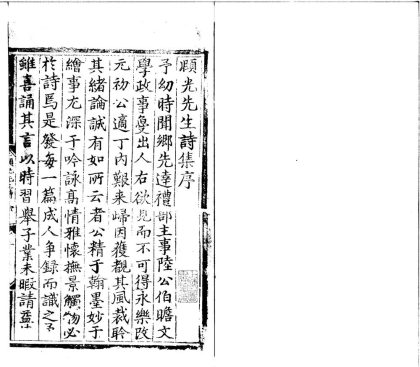 頤光先生詩集序
予幼時聞鄉先達禮部主事陸公伯瞻文
學政事敻出人右欲見而不可得永樂改
元初公適丁內艱来歸因獲覩其風裁聆
其緒論誠有如所云者公精于翰墨妙于
繪事尤深于吟詠高情雅懷撫景觸物必
於詩焉是發每一篇成人争録而識之予
雖喜誦其言以時習舉子業未暇請益